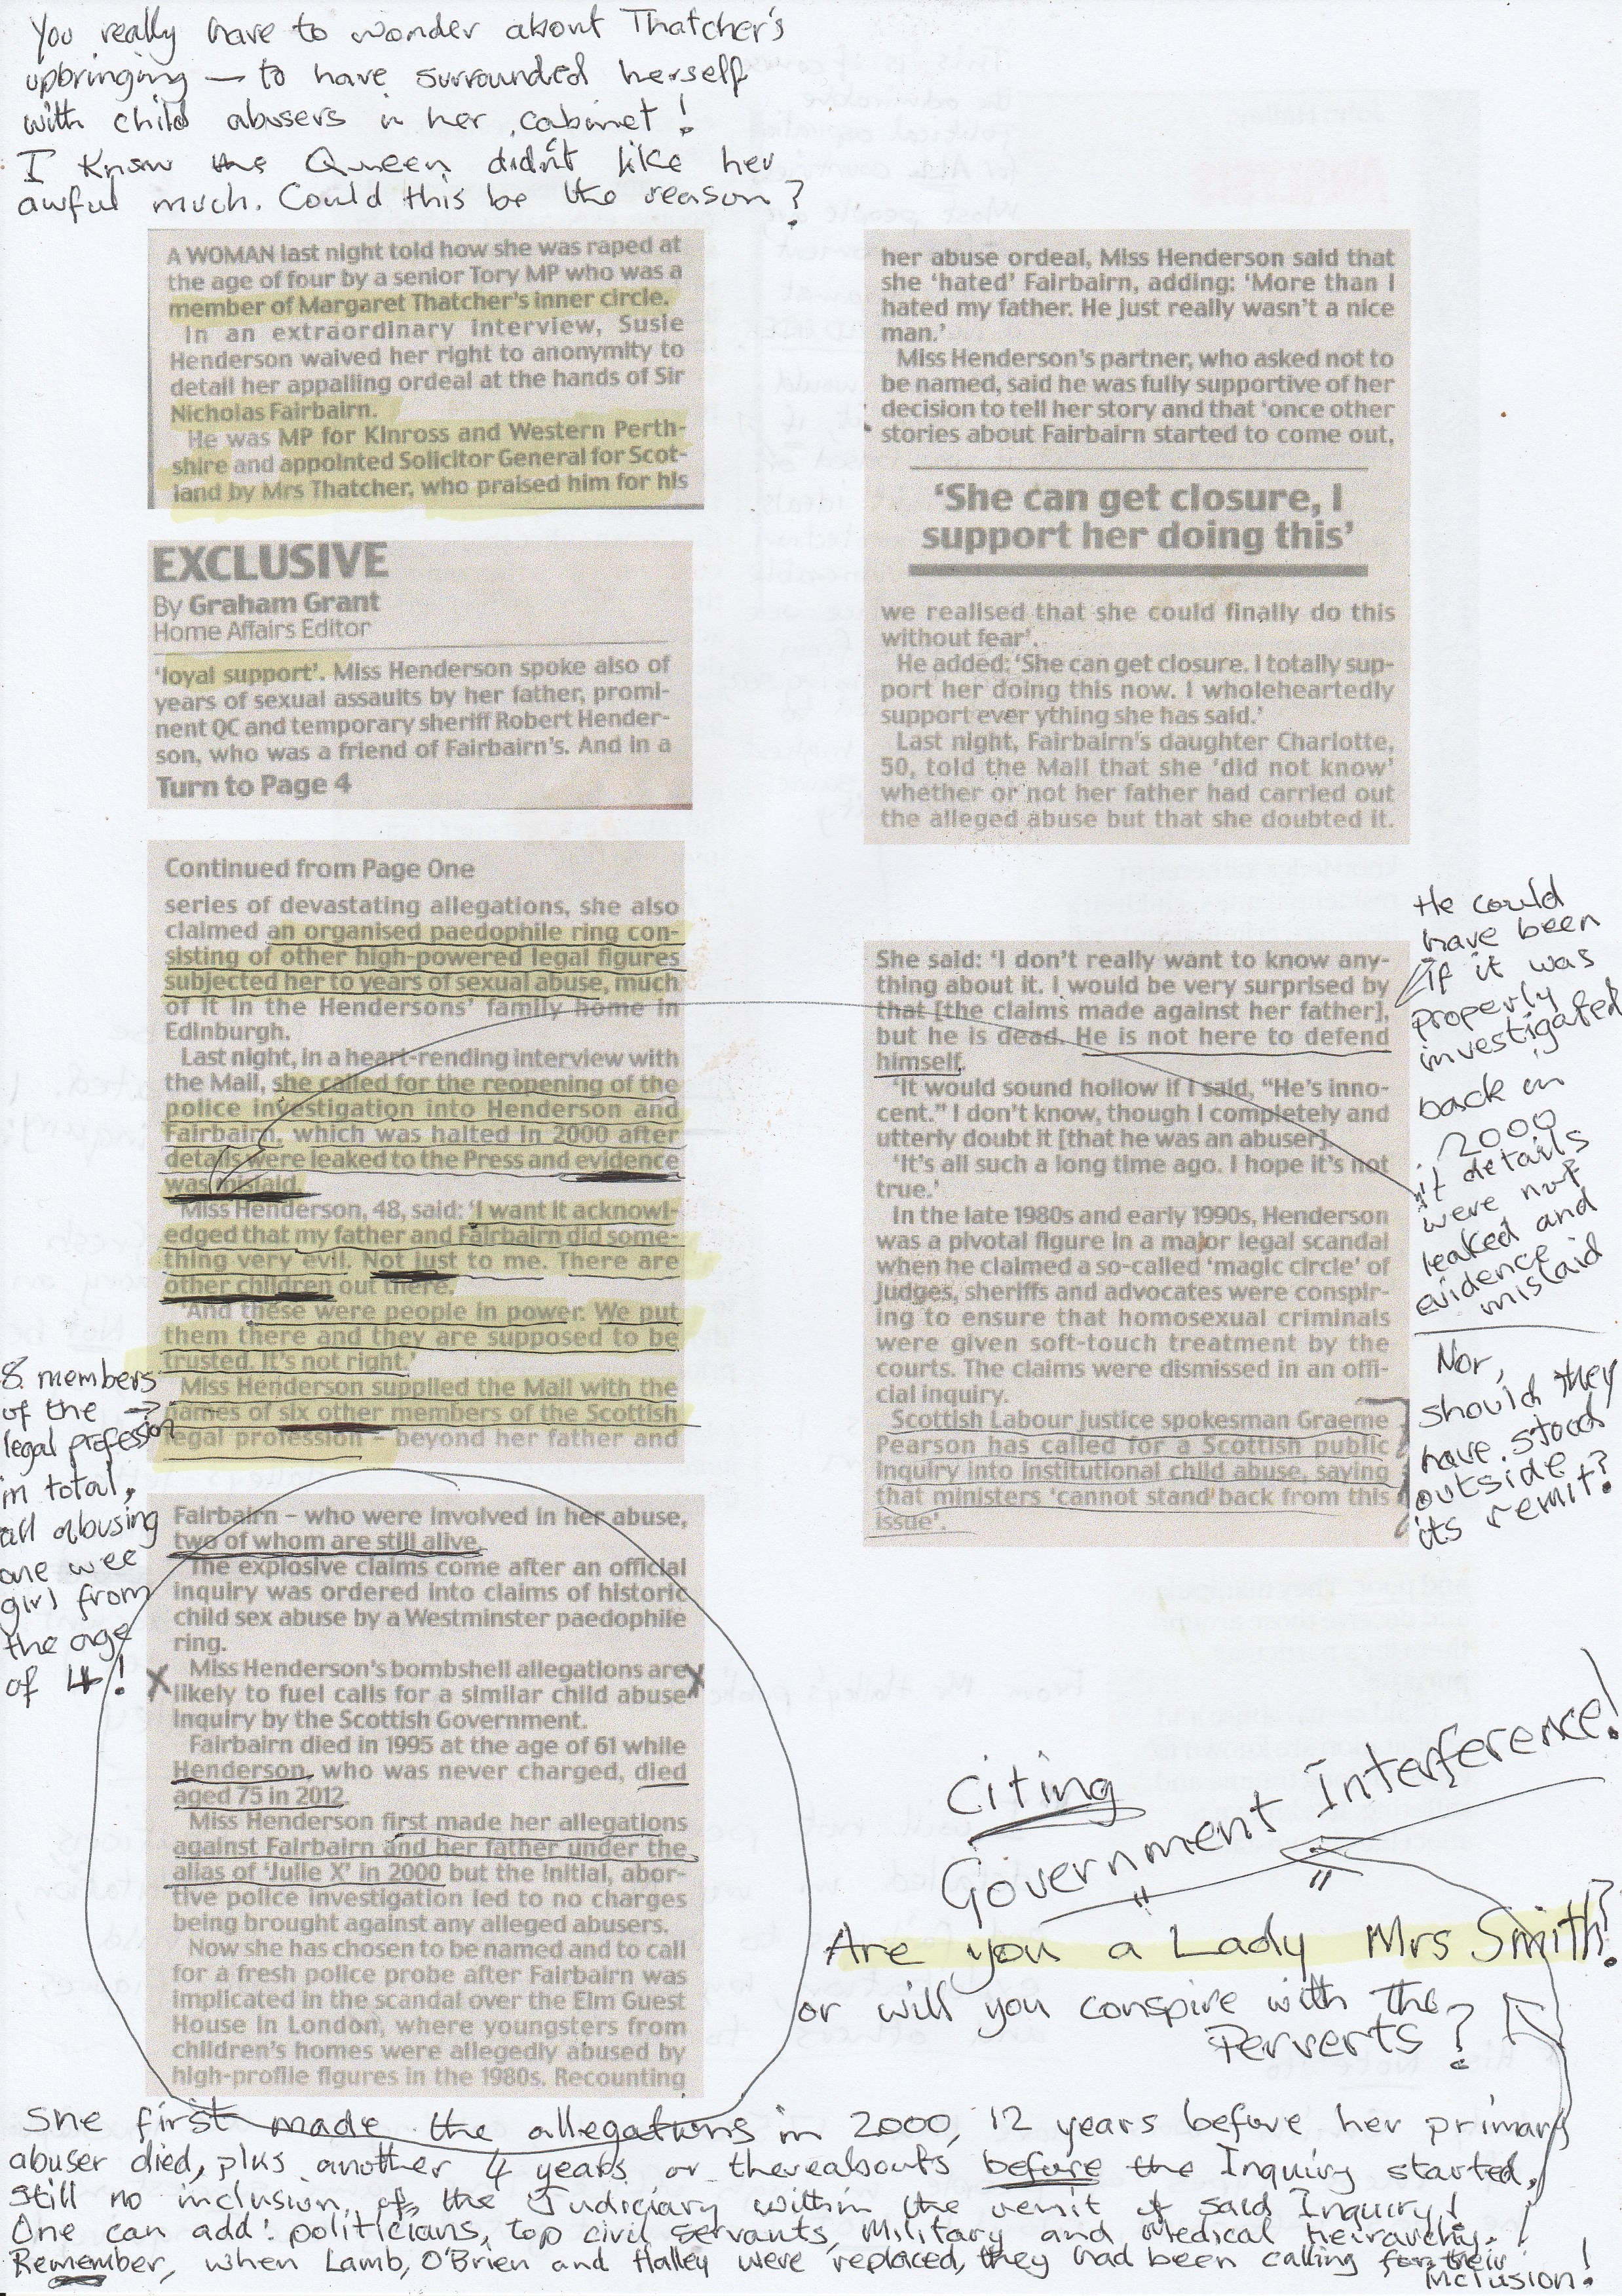 You really have to wonder about Thatcher's
upbringing — to have surrounded herself
with child abusers in her cabinet!
I know the Queen didn't like her
awful much. Could this be the reason?
A WOMAN last night told how she was raped at
the age of four by a senior Tory MP who was a
member of Margaret Thatcher's inner circle.
In an extraordinary interview, Susie
Henderson waived her right to anonymity to
detail her appalling ordeal at the hands of Sir
Nicholas Fairbairn.
He was MP for Kinross and Western Perth-
shire and appointed Solicitor General for Scot-
land by Mrs Thatcher, who praised him for his
EXCLUSIVE
By Graham Grant
Home Affairs Editor
'loyal support'. Miss Henderson spoke also of
years of sexual assaults by her father, promi-
nent QC and temporary sheriff Robert Hender-
son, who was a friend of Fairbairn's. And in a
Turn to Page 4
Continued from Page One
series of devastating allegations, she also
claimed an organised paedophile ring con-
sisting of other high-powered legal figures
subjected her to years of sexual abuse, much
of it in the Hendersons' family home in
Edinburgh.
Last night, in a heart-rending interview with
the Mail, she called for the reopening of the
police investigation into Henderson and
Fairbairn, which was halted in 2000 after
details were leaked to the Press and evidence
was mislaid.
Miss Henderson, 48, said: 'I want it acknowl-
edged that my father and Fairbairn did some-
thing very evil. Not just to me. There are
other children out there.
'And these were people in power. We put
them there and they are supposed to be
trusted. It's not right.'
Miss Henderson supplied the Mail with the
names of six other members of the Scottish
legal profession – beyond her father and
8 members
of the →
legal profession
in total,
all abusing
one wee
girl from
the age
of 4!
Fairbairn – who were involved in her abuse,
two of whom are still alive.
The explosive claims come after an official
inquiry was ordered into claims of historic
child sex abuse by a Westminster paedophile
ring.
X Miss Henderson's bombshell allegations are X
likely to fuel calls for a similar child abuse
inquiry by the Scottish Government.
Fairbairn died in 1995 at the age of 61 while
Henderson, who was never charged, died
aged 75 in 2012.
Miss Henderson first made her allegations
against Fairbairn and her father under the
alias of 'Julie X' in 2000 but the initial, abor-
tive police investigation led to no charges
being brought against any alleged abusers.
Now she has chosen to be named and to call
for a fresh police probe after Fairbairn was
implicated in the scandal over the Elm Guest
House in London, where youngsters from
children's homes were allegedly abused by
high-profile figures in the 1980s. Recounting
her abuse ordeal, Miss Henderson said that
she 'hated' Fairbairn, adding: 'More than I
hated my father. He just really wasn't a nice
man.'
Miss Henderson's partner, who asked not to
be named, said he was fully supportive of her
decision to tell her story and that 'once other
stories about Fairbairn started to come out,
'She can get closure, I
support her doing this'
we realised that she could finally do this
without fear'.
He added: 'She can get closure. I totally sup-
port her doing this now. I wholeheartedly
support ever ything she has said.'
Last night, Fairbairn's daughter Charlotte,
50, told the Mail that she 'did not know'
whether or not her father had carried out
the alleged abuse but that she doubted it.
She said: 'I don't really want to know any-
thing about it. I would be very surprised by
that [the claims made against her father],
but he is dead. He is not here to defend
himself.
'It would sound hollow if I said, "He's inno-
cent." I don't know, though I completely and
utterly doubt it [that he was an abuser].
'It's all such a long time ago. I hope it's not
true.'
In the late 1980s and early 1990s, Henderson
was a pivotal figure in a major legal scandal
when he claimed a so-called 'magic circle' of
judges, sheriffs and advocates were conspir-
ing to ensure that homosexual criminals
were given soft-touch treatment by the
courts. The claims were dismissed in an offi-
cial inquiry.
Scottish Labour justice spokesman Graeme
Pearson has called for a Scottish public
inquiry into institutional child abuse, saying
that ministers 'cannot stand back from this
issue'.
He could
have been
if it was
properly
investigated
back in
2000
if details
were not
leaked and
evidence
mislaid
Nor,
should they
have stood
outside
its remit?
Citing
Government Interference!
Are you a Lady Mrs Smith?
or will you conspire with the
Perverts?
She first made the allegations in 2000, 12 years before her primary
abuser died, plus another 4 years or thereabouts before the Inquiry started,
still no inclusion of the Judiciary within the remit of said Inquiry!
One can add: politicians, top civil servants, Military and Medical heirarchy.
Remember, when Lamb, O'Brien and Halley were replaced, they had been calling for their
inclusion!